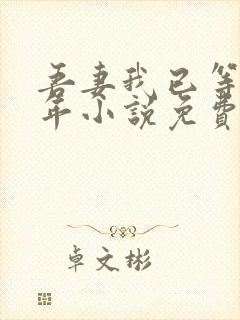 吾妻我已等
年小说免費
卓文彬